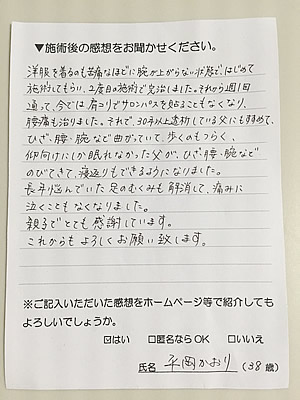 ▼施術後の感想をお聞かせください。
洋服を着るのも苦痛なほどに腕が上がらない状態で、はじめて
施術してもらい、2度目の施術で完治しました。それから週1回
通って、今では肩コリでサロンパスを貼ることもなくなり、
腰痛も治りました。それで、30年以上透析している父にも勧めて、
ひざ、腰・腕など曲がっていて、歩くのもつらく、
仰向けにしか眠れなかった父が、ひざ、腰、腕などが
のびてきて、寝返りもできるようになりました。
長年悩んでいた足のむくみも解消して、痛みに
泣くこともなくなりました。
親子でとても感謝しています。
これからもよろしくお願い致します。
※ご記入いただいた感想をホームページ等で紹介しても
よろしいでしょうか。
☑はい □匿名ならOK □いいえ
氏名 平岡かおり (38歳)